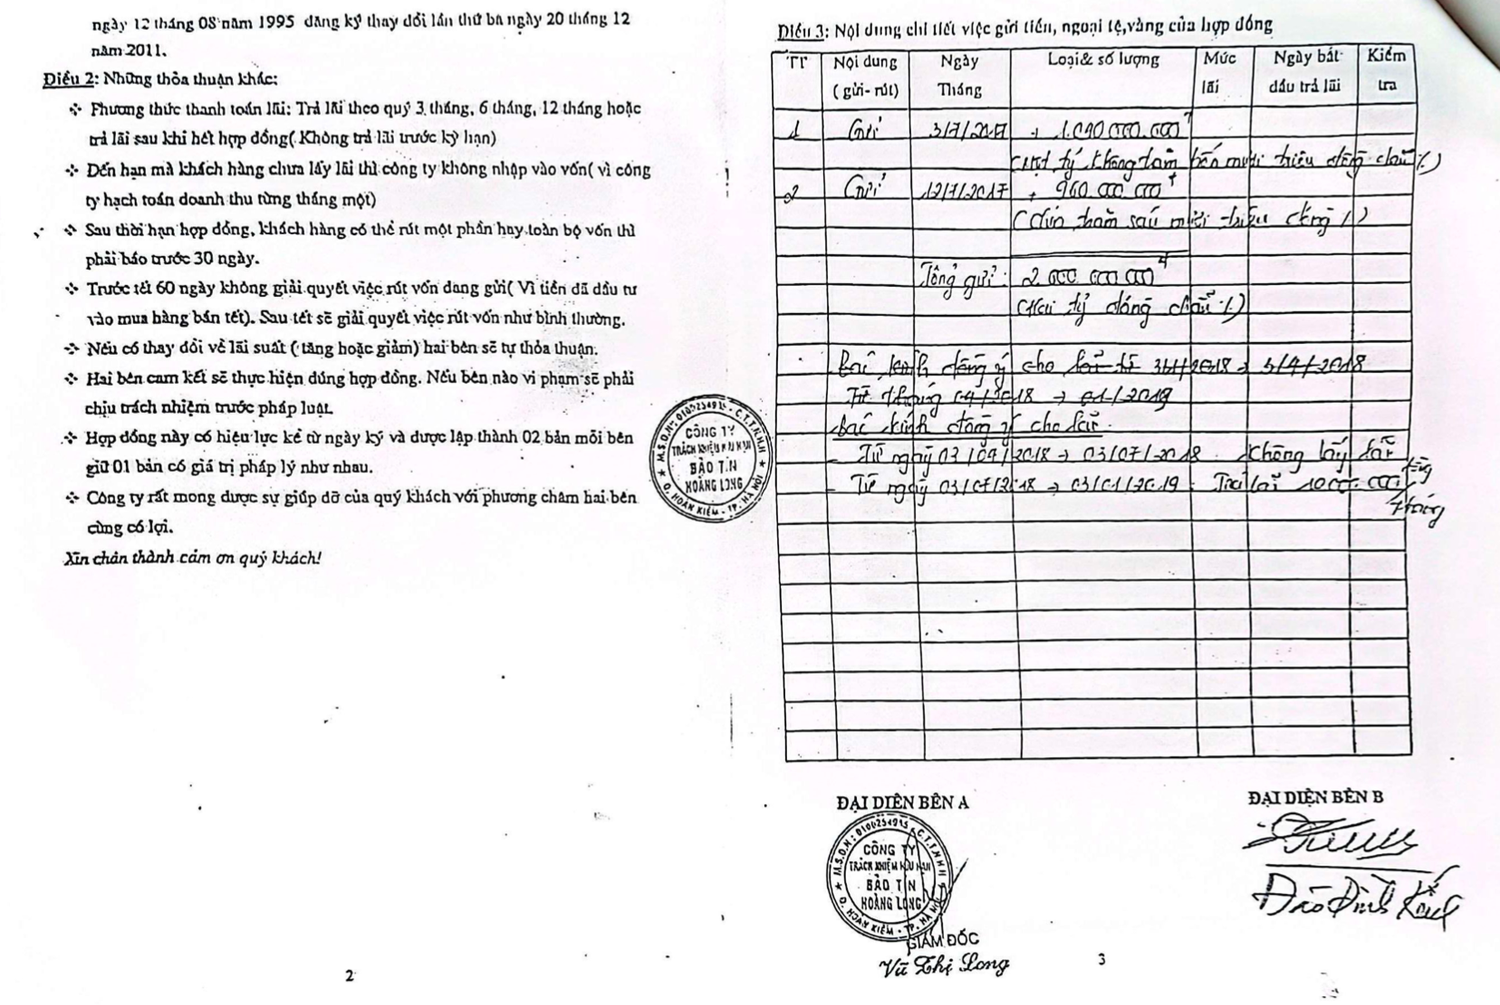 ngày 12 tháng 08 năm 1995 đăng ký thay đổi lần thứ ba ngày 20 tháng 12
năm 2011.
Điều 2: Những thỏa thuận khác:
❖ Phương thức thanh toán lãi: Trả lãi theo quý 3 tháng, 6 tháng, 12 tháng hoặc
trả lãi sau khi hết hợp đồng( Không trả lãi trước kỳ hạn)
❖ Đến hạn mà khách hàng chưa lấy lãi thì công ty không nhập vào vốn( vì công
ty hạch toán doanh thu từng tháng một)
❖ Sau thời hạn hợp đồng, khách hàng có thể rút một phần hay toàn bộ vốn thì
phải báo trước 30 ngày.
❖ Trước tết 60 ngày không giải quyết việc rút vốn đang gửi( Vì tiền đã đầu tư
vào mua hàng bán tết). Sau tết sẽ giải quyết việc rút vốn như bình thường.
❖ Nếu có thay đổi về lãi suất ( tăng hoặc giảm) hai bên sẽ tự thỏa thuận.
❖ Hai bên cam kết sẽ thực hiện đúng hợp đồng. Nếu bên nào vi phạm sẽ phải
chịu trách nhiệm trước pháp luật.
❖ Hợp đồng này có hiệu lực kể từ ngày ký và được lập thành 02 bản mỗi bên
giữ 01 bản có giá trị pháp lý như nhau.
❖ Công ty rất mong được sự giúp đỡ của quý khách với phương châm hai bên
cùng có lợi.
Xin chân thành cảm ơn quý khách!
2
M.S.D.N: 0100254915 - C.T.T.N.H.H
CÔNG TY
TRÁCH NHIỆM HỮU HẠN
BẢO TÍN
HOÀNG LONG
Q. HOÀN KIẾM - TP. HÀ NỘI
Điều 3: Nội dung chi tiết việc gửi tiền, ngoại tệ,vàng của hợp đồng
TT Nội dung ( gửi- rút) Ngày Tháng Loại& số lượng Mức lãi Ngày bắt đầu trả lãi Kiểm tra
1 Gửi 3/7/2017 + 1.040.000.000
(Một tỷ không trăm bốn mươi triệu đồng chẵn ./.)
2 Gửi 12/7/2017 + 960.000.000
( Chín trăm sáu mươi triệu đồng ./.)
Tổng gửi: 2.000.000.000
(Hai tỷ đồng chẵn ./.)
Bác kính đồng ý cho 3/4/2018
Từ tháng 04/2018 → 01/2019
Bác kính đồng ý cho lãi.
- Từ ngày 03/04/2018 → 03/07/2018. Không lấy lãi
- Từ ngày 03/07/2018 → 03/01/2019. Trả lãi 10.000.000 đồng
/ tháng
ĐẠI DIỆN BÊN A
M.S.D.N: 0100254915 - C.T.T.N.H.H
CÔNG TY
TRÁCH NHIỆM HỮU HẠN
BẢO TÍN
HOÀNG LONG
Q. HOÀN KIẾM - TP. HÀ NỘI
GIÁM ĐỐC
Vũ Thị Long
ĐẠI DIỆN BÊN B
Đào Đình Kính
3